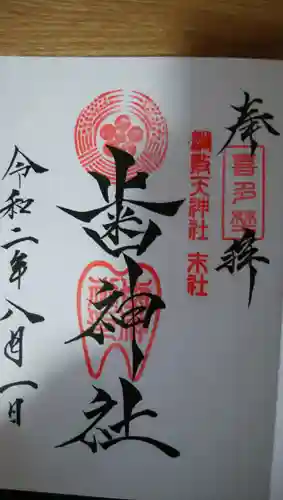 奉拝
喜多埜
綱敷天神社 末社
歯神社
令和二年八月一日